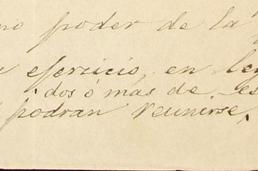 no poder de la
ejerzicio, en ley
dos ó mas de es
podran reunirse,